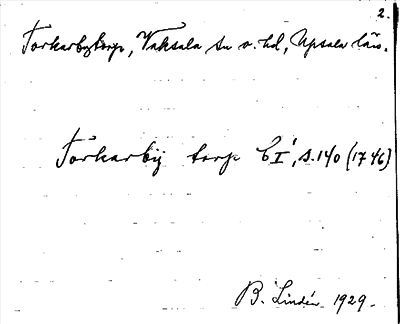 2.
Torkarbytorp, Vaksala sn o. hd, Upsala län.
Torkarbÿ torp CI', s. 140 (1746)
B. Lindén 1929.